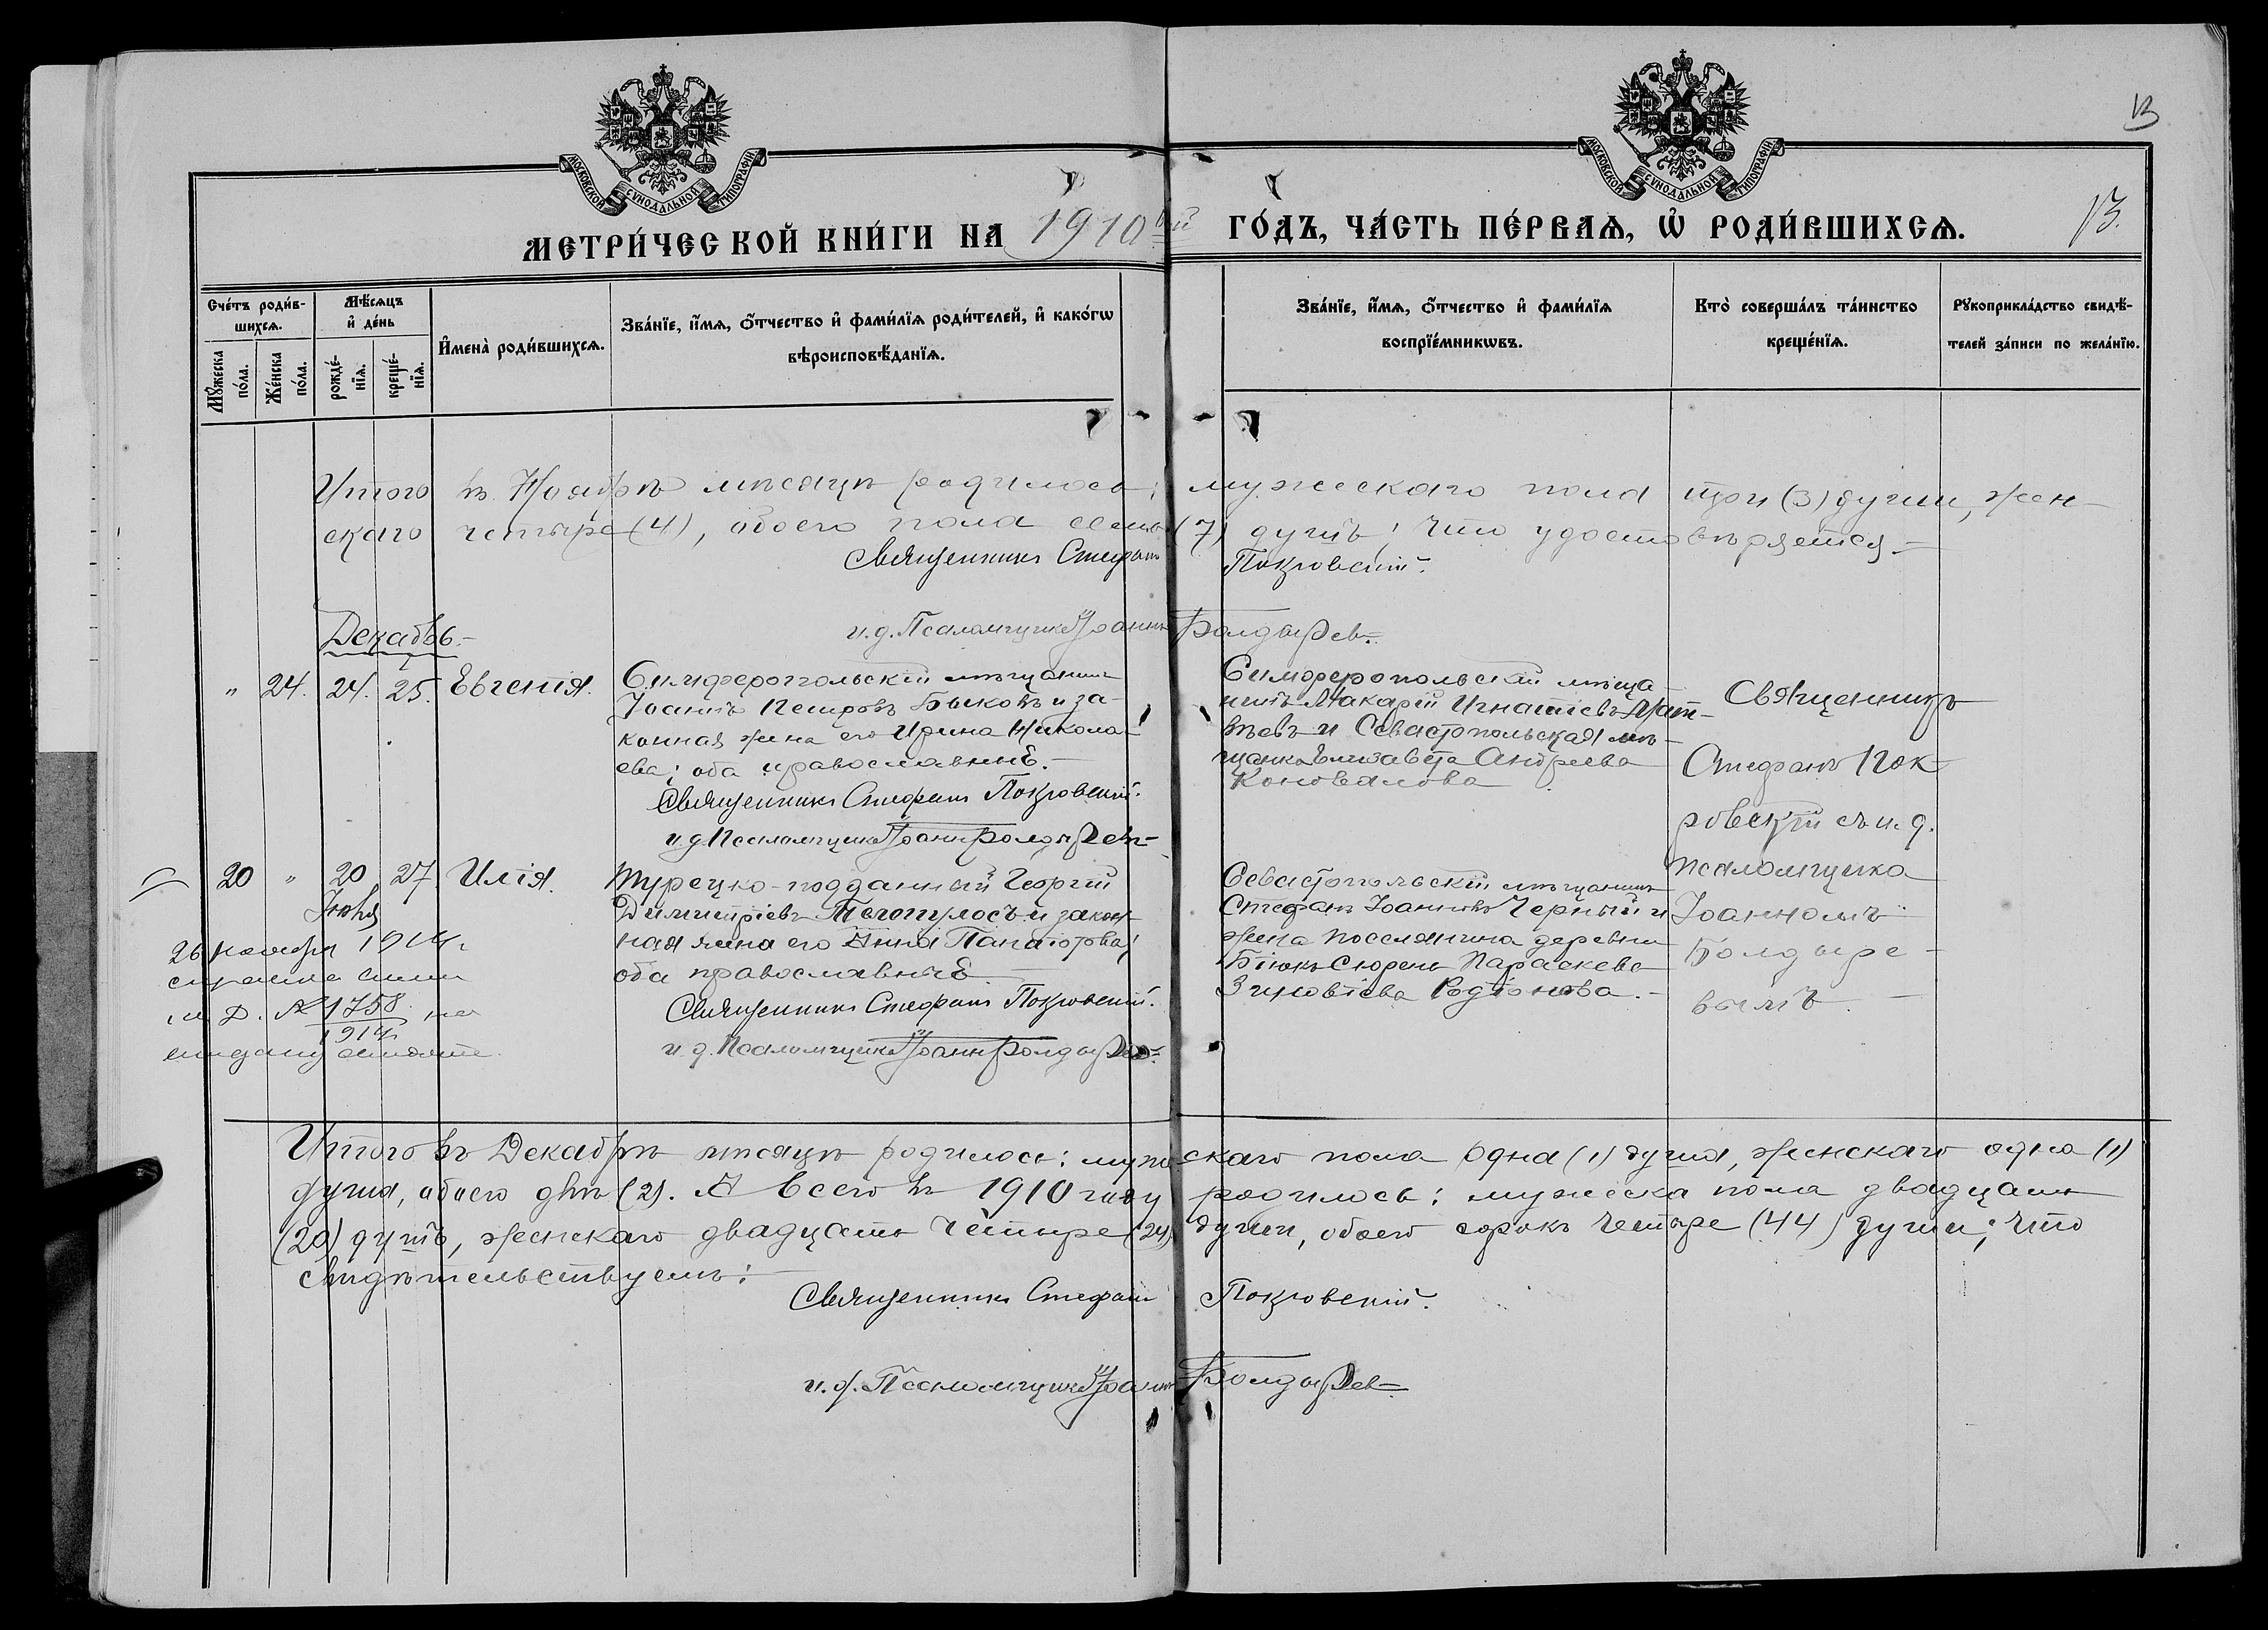 13
МОСКОВСКОЙ СѴНОДАЛЬНОЙ ТИПОГРАФІИ
МОСКОВСКОЙ СѴНОДАЛЬНОЙ ТИПОГРАФІИ
МЕТРИ́ЧЕСКОЙ КНИ́ГИ НА 1910ый ГО́ДЪ, ЧА́СТЬ ПЕ́РВАѦ, Ѽ РОДИ́ВШИХСѦ.
13.
Сче́тъ роди́в-
шихсѧ.
Мꙋ́жеска
по́ла.
Же́нска
по́ла.
Мѣ́сѧцъ
и҆ де́нь
рожде́-
нїѧ.
креще́-
нїѧ.
И҆мена̀ роди́вшихсѧ.
Зва́нїе, и҆́мѧ, ѻ҆́тчество и҆ фами́лїѧ роди́телей, и҆ како́гѡ
вѣроисповѣ́данїѧ.
Зва́нїе, и҆́мѧ, ѻ҆́тчество и҆ фами́лїѧ
воспрїе́мникѡвъ.
Кто̀ соверша́лъ та́инство
креще́нїѧ.
Рꙋкоприкла́дство свидѣ́-
телей за́писи по жела́нїю.
Итого въ Ноябрѣ мѣсяцѣ родилось: мужескаго пола три (3) души, жен-
скаго четыре (4), обоего пола семь (7) душъ; что удостовѣряется.—
Священникъ Стефанъ Покровскій.
и. д. Псаломщика Іоаннъ Болдыревъ.
Декабрь.
" 24. 24. 25. Евгенія.
Симферопольскій мѣщанинъ
Іоаннъ Петровъ Быковъ и за-
конная жена его Ирина Никола-
ева; оба православные.—
Священникъ Стефанъ Покровскій.
и. д. Псаломщика Іоаннъ Болдыревъ
Симферопольскій мѣща-
нинъ Макарій Игнатіевъ Мат-
вѣевъ и Севастопольская мѣ-
щанка Елизавета Андреева
Коновалова
Священникъ
Стефанъ Пок-
ровскій съ и. д.
псаломщика
Іоанномъ
Болдыре-
вымъ.
20 " 20 27. Илія.
Іюля
Турецко-подданный Георгій
Димитріевъ Пегопулосъ и закон-
ная жена его Анна Панаіотова;
оба православные
Священникъ Стефанъ Покровскій.
и. д. Псаломщика Іоаннъ Болдыревъ.
Севастопольскій мѣщанинъ
Стефанъ Іоанновъ Черный и
жена поселянина деревни
Біюкъ Сюрень Параскева
Зиновіева Родіонова.—
26 ноября 1914г.
Д. № 1758
1914
Итого въ Декабрѣ мѣсяцѣ родилось: мужескаго пола одна (1) душа, женскаго одна (1)
душа, обоего двѣ (2). А всего въ 1910 году родилось: мужеска пола двадцать
(20) душъ, женскаго двадцать четыре (24) души, обоего сорокъ четыре (44) души; что
свидѣтельствуемъ:
Священникъ Стефанъ Покровскій.
и. д. Псаломщика Іоаннъ Болдыревъ